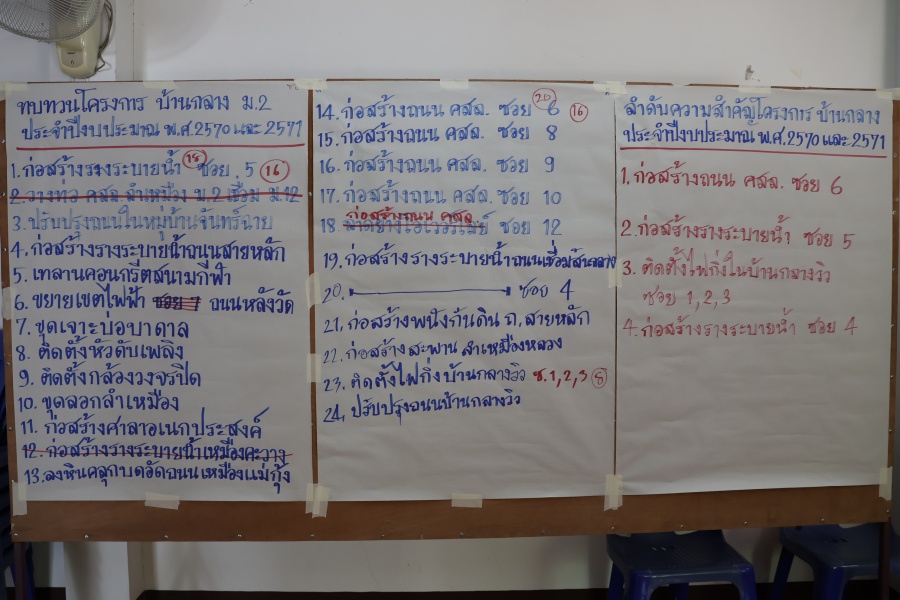 ทบทวนโครงการ บ้านกลาง ม.2
ประจำปีงบประมาณ พ.ศ.2570 และ 2571
1. ก่อสร้างรางระบายน้ำ 15 ซอย 5 16
2. วางท่อ คสล. ลำเหมือง ม.2 เชื่อม ม.12
3. ปรับปรุงถนนในหมู่บ้านจันทร์ฉาย
4. ก่อสร้างรางระบายน้ำถนนสายหลัก
5. เทลานคอนกรีตสนามกีฬา
6. ขยายเขตไฟฟ้า ซอย 7 ถนนหลังวัด
7. ขุดเจาะบ่อบาดาล
8. ติดตั้งหัวดับเพลิง
9. ติดตั้งกล้องวงจรปิด
10. ขุดลอกลำเหมือง
11. ก่อสร้างศาลาอเนกประสงค์
12. ก่อสร้างรางระบายน้ำเหมืองคะวาง
13. ลงหินคลุกบดอัดถนนเหมืองแม่กุ้ง
14. ก่อสร้างถนน คสล. ซอย 6 20 16
15. ก่อสร้างถนน คสล. ซอย 8
16. ก่อสร้างถนน คสล. ซอย 9
17. ก่อสร้างถนน คสล. ซอย 10
ก่อสร้างถนน คสล.
18. ลาดยางโอเวอร์เลย์ ซอย 12
19. ก่อสร้างรางระบายน้ำถนนเชื่อมสันกลาง
20. ซอย 4
21. ก่อสร้างพนังกันดิน ถ.สายหลัก
22. ก่อสร้างสะพาน ลำเหมืองหลวง
23. ติดตั้งไฟกิ่งบ้านกลางวิว ซ.1,2,3 8
24. ปรับปรุงถนนบ้านกลางวิว
ลำดับความสำคัญโครงการ บ้านกลาง
ประจำปีงบประมาณ พ.ศ.2570 และ 2571
1. ก่อสร้างถนน คสล. ซอย 6
2. ก่อสร้างรางระบายน้ำ ซอย 5
3. ติดตั้งไฟกิ่งในบ้านกลางวิว
ซอย 1,2,3
4. ก่อสร้างรางระบายน้ำ ซอย 4